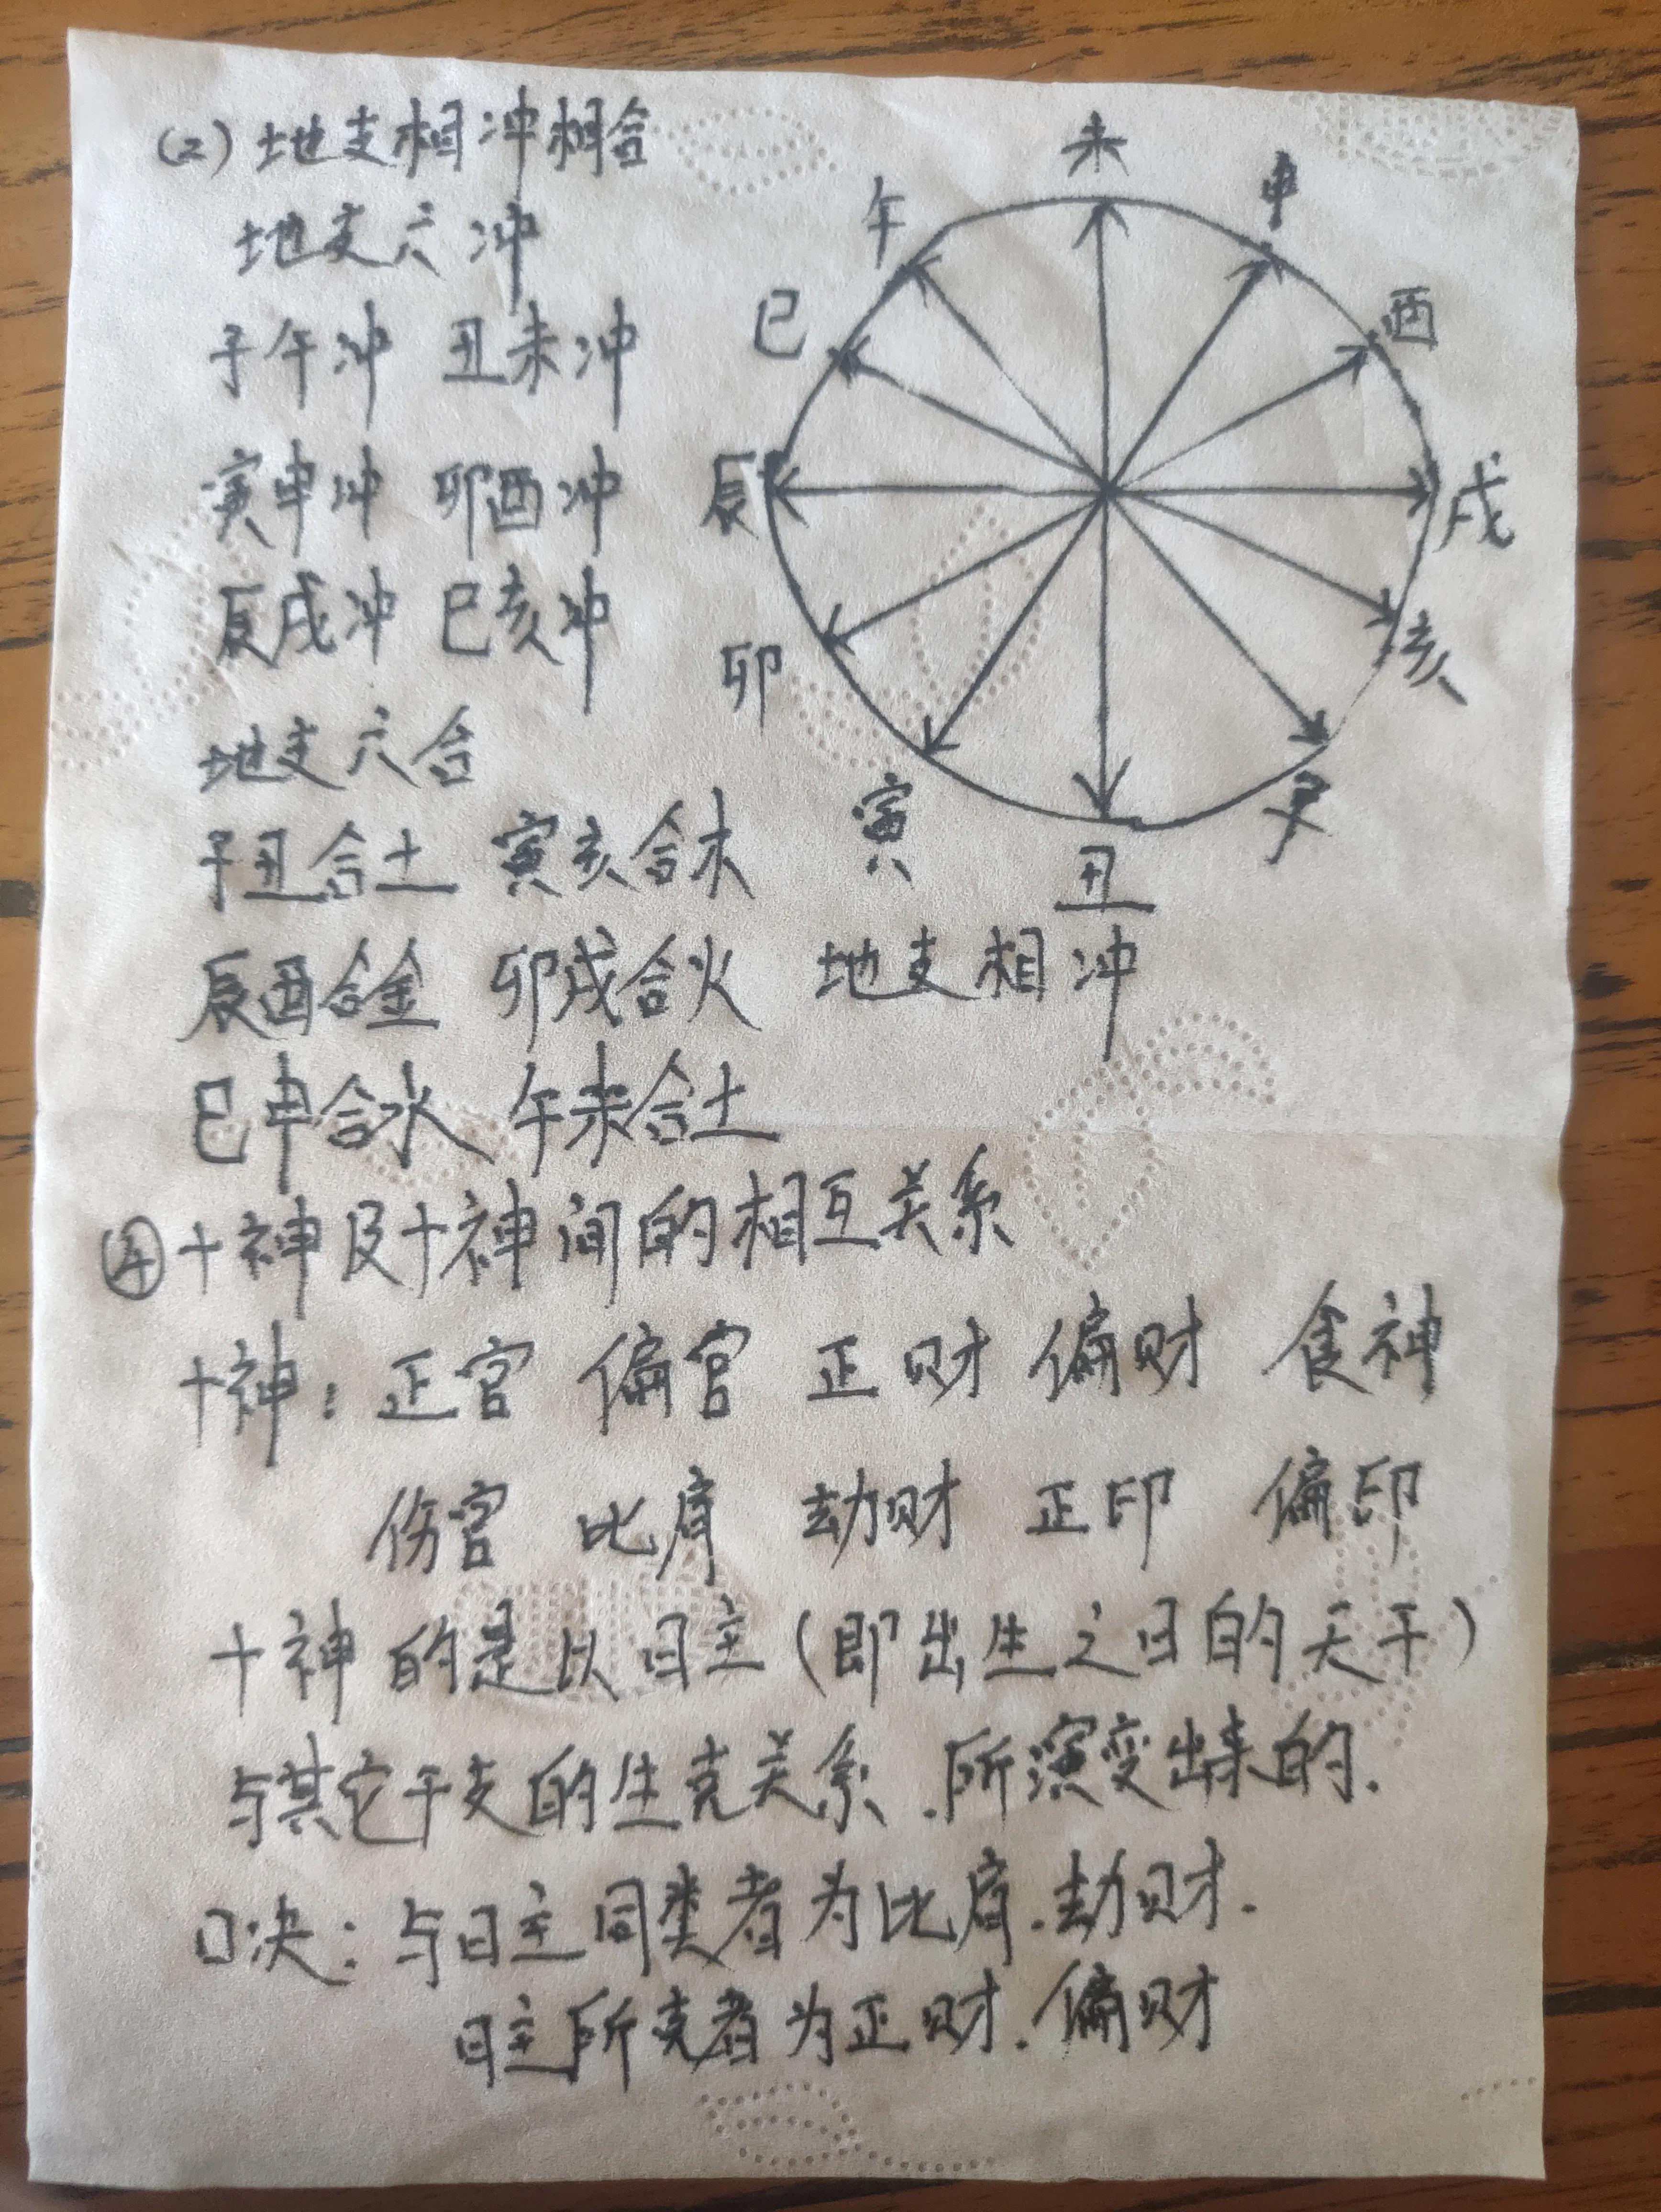 (2)地支相冲相合
地支六冲
子午冲 丑未冲
寅申冲 卯酉冲
辰戌冲 巳亥冲
地支六合
子丑合土 寅亥合木
辰酉合金 卯戌合火
巳申合水 午未合土
未
申
酉
戌
亥
子
丑
寅
卯
辰
巳
午
地支相冲
④十神及十神间的相互关系
十神：正官 偏官 正财 偏财 食神
伤官 比肩 劫财 正印 偏印
十神的是以日主(即出生之日的天干)
与其它干支的生克关系.所演变出来的.
口决：与日主同类者为比肩.劫财.
日主所克者为正财.偏财